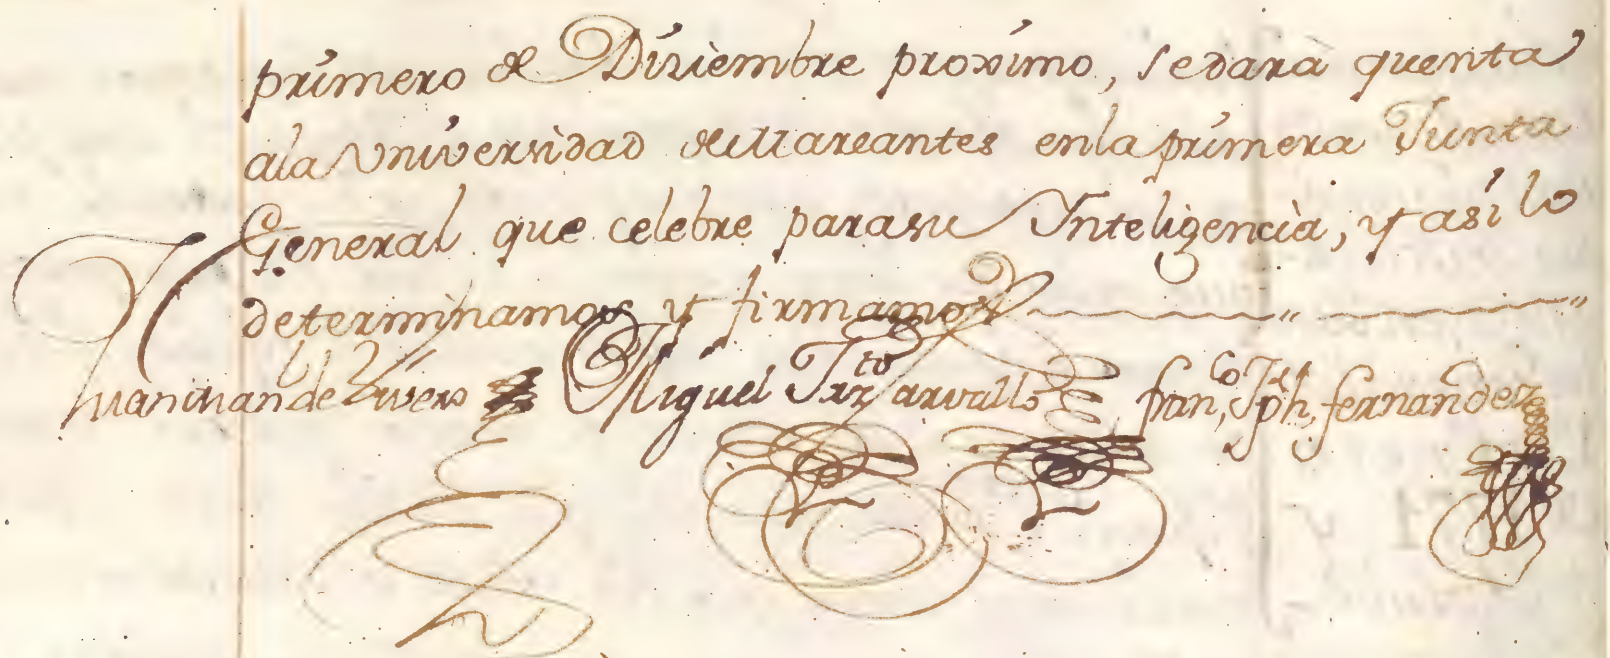 primero de Diziembre proximo, sedarà quenta
ala Universidad de Mareantes enla primera Junta
General que celebre parasu Inteligencia, y así lo
determinamos y firmamos
Juan Man.l de Vivero Miguel Carvallo fran.co Jph. fernandez